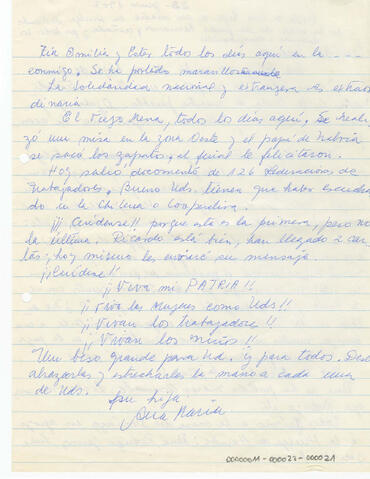 Tía Emilia y Ester todos los días aquí en la ----
conmigo. Se ha portado maravillosamente
La solidaridad nacional y extranjera es extraor
dinaria
El Viejo Mena, todos los días aquí. Se reali
zó una misa en la zona Oeste y el papi de
se sacó los zapatos, al final le felicitaron.
Hoy salió documento de 126 Federaciones de
Trabajadores. Bueno Uds. tienen que haber escucha
do en la Chilena o Cooperativa.
¡¡¡Cuídense!! porque esta es la primera, pero no
la última. Ricardo está bien, han llegado 2 car
tas, hoy mismo le enviaré su mensaje.
¡¡Cuídense!!
¡¡Viva mi PATRIA!!
¡¡Viva las mujeres como Uds!!
¡¡Vivan los trabajadores!!
¡¡Vivan los niños!!
Un beso grande para Ud. y para todos. Deseo
abrazarlas y estrecharles la mano a cada una
de Uds.
su hija
Ana María
000001-000023-000021